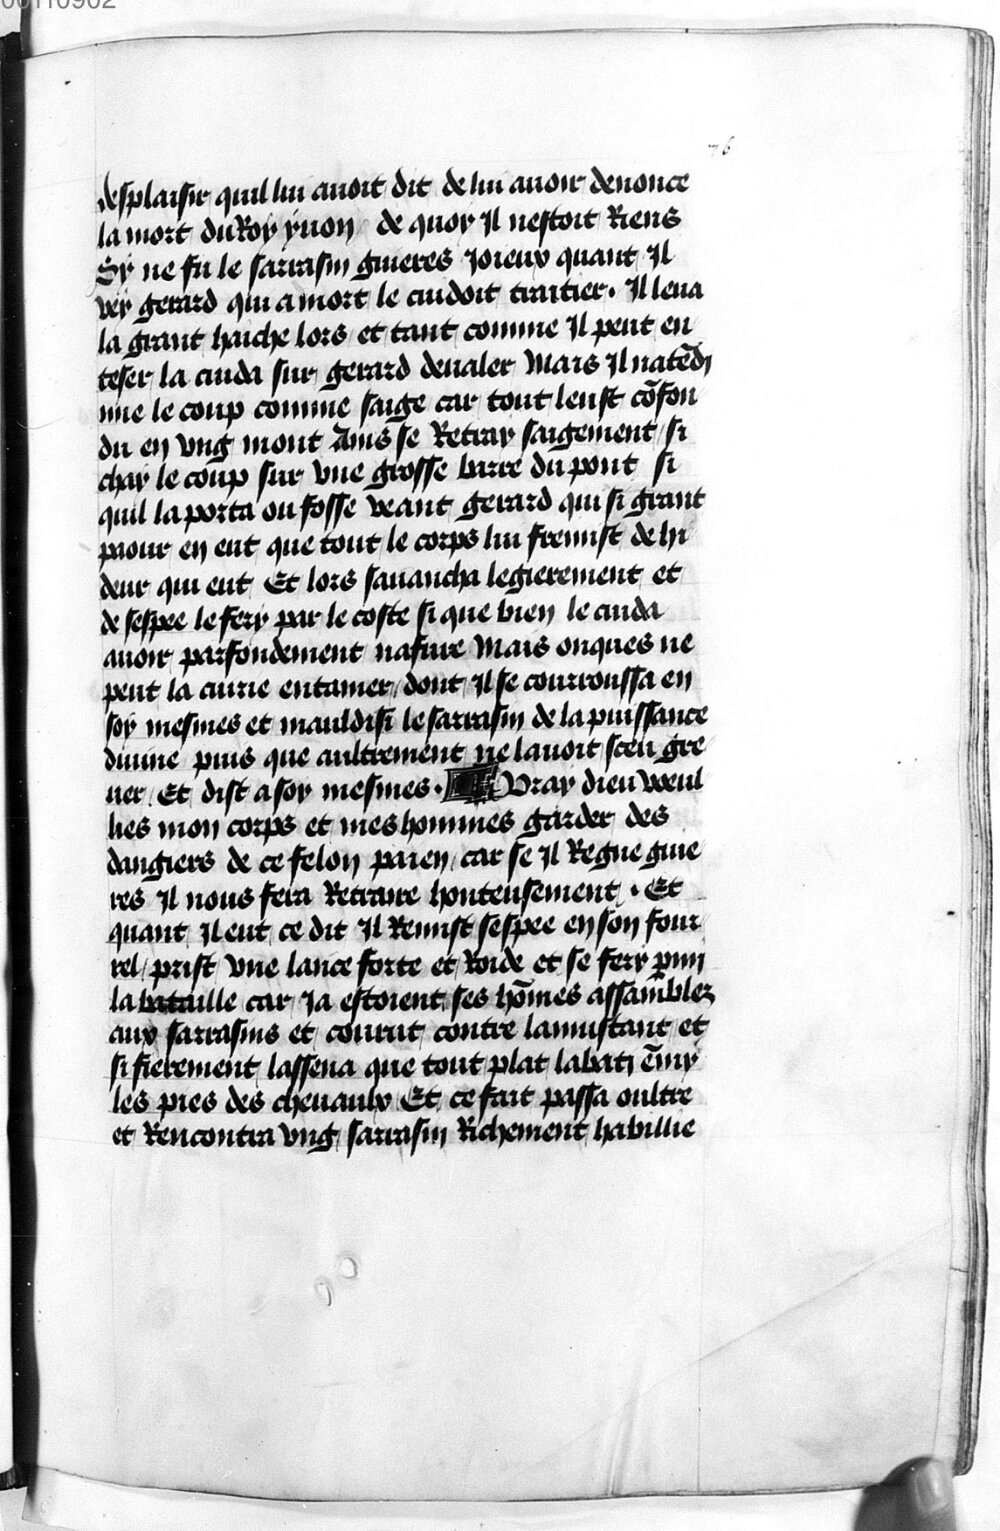 00110902
76
desplaisir quil lui auoit dit de lui auoir denonce
la mort du Roy yuon de quoy Il nestoit Riens
Sy ne fu le sarrasin guieres Joieux quant Il
vey gerard qui a mort le cuidoit traitier. Il leua
la grant haiche lors et tant comme Il peut en
teser la cuida sur gerard deualer Mais Il natēdi
mie le coup comme saige car tout leust cōfon
du en vng mont Ains se Retray saigement / si
chay le coup sur vne grosse barre du pont si
quil la porta ou fosse veant gerard qui si grant
paour en eut que tout le corps lui fremist de hi
deur qui eut Et lors sauancha legierement et
de sespee le fery par le coste si que bien le cuida
auoir parfondement nafure Mais onques ne
peut la cuirie entamer / dont Il se courroussa en
soy mesmes et mauldisi le sarrasin de la puissance
diuine puis que aultrement ne lauoit sceu gre
uer Et dist a soy mesmes . Vray dieu weul
lies mon corps et mes hommes garder des
dangiers de ce felon paien / car se Il Regne guie
res Il nous fera Retraire honteusement . Et
quant Il eut ce dit Il Remist sespee en son four
rel / prist vne lance forte et Roide et se fery pmi
la bataille car Ja estoient ses hōmes assāmblez
aux sarrasins et courut contre lamustant et
si fierement lassena que tout plat labati ēmy
les pies des cheuaulx Et ce fait passa oultre
et Rencontra vng sarrasin Richement habillie